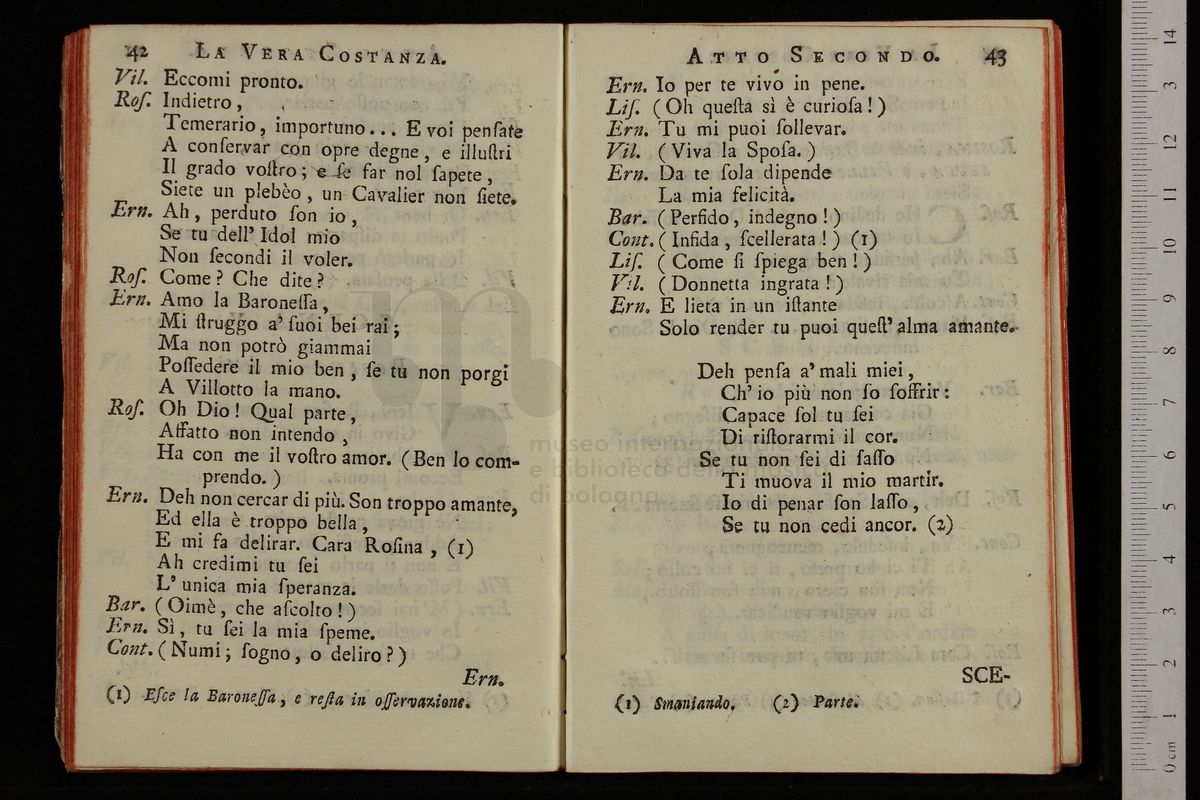 42 LA VERA COSTANZA.
Vil. Eccomi pronto.
Roſ. Indietro,
Temerario, importuno... E voi penſate
A conſervar con opre degne, e illuſtri
Il grado voſtro; e ſe far nol ſapete,
Siete un plebèo, un Cavalier non ſiete.
Ern. Ah, perduto ſon io,
Se tu dell' Idol mio
Non ſecondi il voler.
Roſ. Come? Che dite?
Ern. Amo la Baroneſſa,
Mi ſtruggo a' ſuoi bei rai;
Ma non potrò giammai
Poſſedere il mio ben, ſe tu non porgi
A Villotto la mano.
Roſ. Oh Dio! Qual parte,
Affatto non intendo,
Ha con me il voſtro amor. (Ben lo com-
prendo.)
Ern. Deh non cercar di più. Son troppo amante,
Ed ella è troppo bella,
E mi fa delirar. Cara Roſina, (1)
Ah credimi tu ſei
L' unica mia ſperanza.
Bar. (Oimè, che aſcolto!)
Ern. Sì, tu ſei la mia ſpeme.
Cont. (Numi; ſogno, o deliro?)
Ern.
(1) Eſce la Baroneſſa, e reſta in oſſervazione.
ATTO SECONDO. 43
Ern. Io per te vivo in pene.
Liſ. (Oh queſta sì è curioſa!)
Ern. Tu mi puoi ſollevar.
Vil. (Viva la Spoſa.)
Ern. Da te ſola dipende
La mia felicità.
Bar. (Perfido, indegno!)
Cont. (Infida, ſcellerata!) (1)
Liſ. (Come ſi ſpiega ben!)
Vil. (Donnetta ingrata!)
Ern. E lieta in un iſtante
Solo render tu puoi queſt' alma amante.
Deh penſa a' mali miei,
Ch' io più non ſo ſoffrir:
Capace ſol tu ſei
Di riſtorarmi il cor.
Se tu non ſei di ſaſſo
Ti muova il mio martir.
Io di penar ſon laſſo,
Se tu non cedi ancor. (2)
SCE-
(1) Smaniando. (2) Parte.
museo internazionale
e biblioteca della musica
di bologna
0 cm 1 2 3 4 5 6 7 8 9 10 11 12 13 14